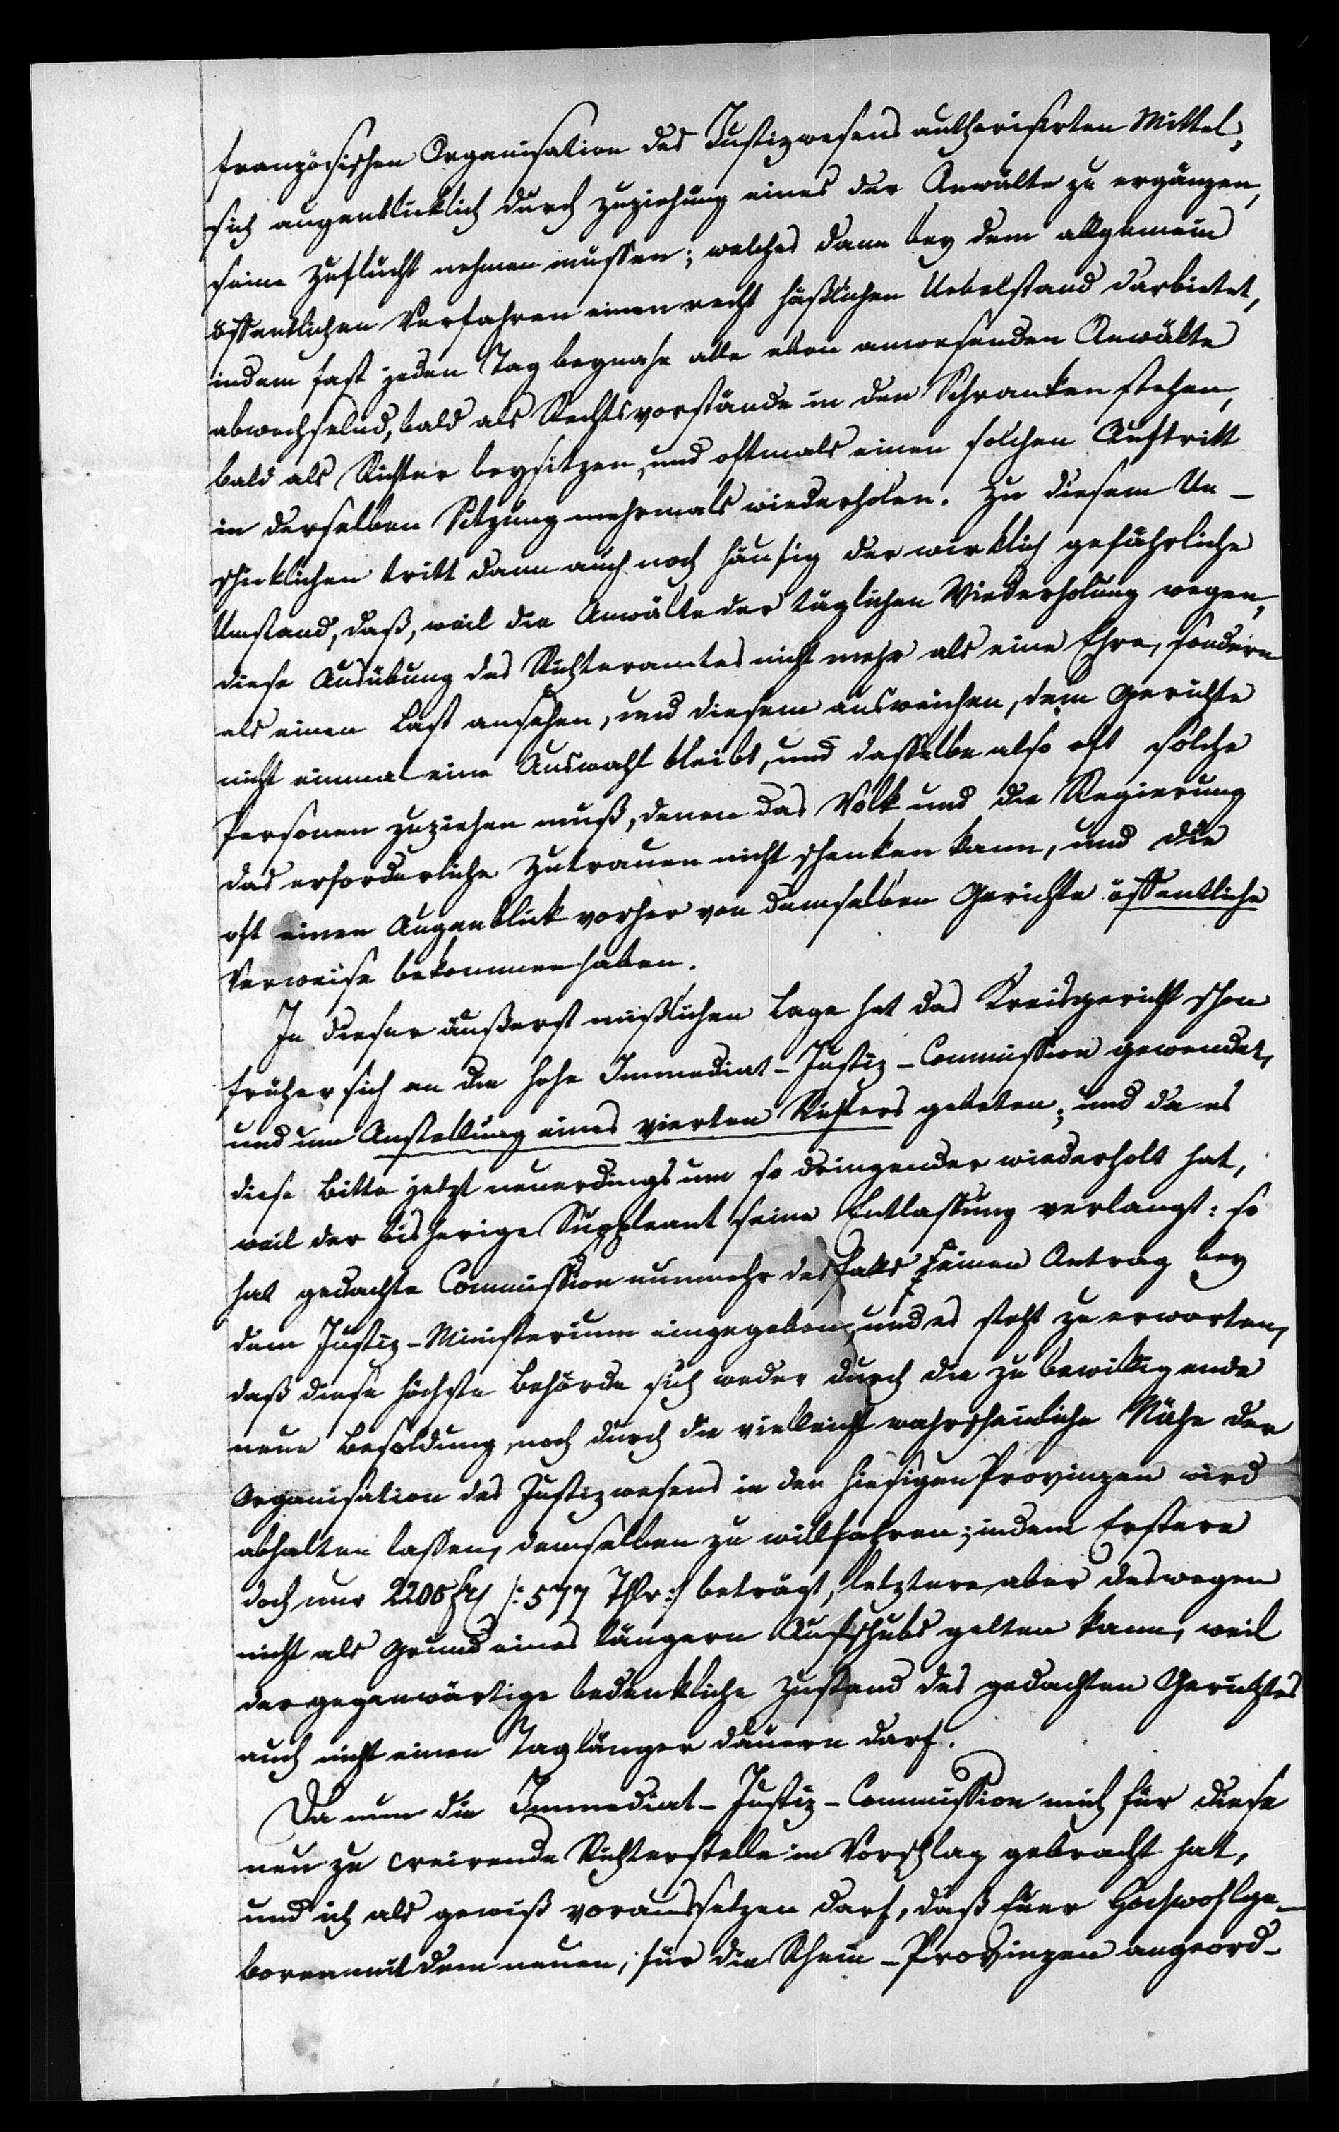 französischen Organisation des Justizwesens authorisirten Mittel,
sich augenblicklich durch Zuziehung eines der Anwälte zu ergänzen,
seine Zuflucht nehmen müssen; welches dann bey dem allgemein
öffentlichen Verfahren einen recht häßlichen Uebelstand darbietet,
indem fast jeden Tag beynahe alle eben anwesenden Anwälte
abwechselnd, bald als Rechtsvorstände in den Schranken stehen,
bald als Richter beysitzen, und oftmals einen solchen Auftritt
in derselben Sitzung mehrmals wiederholen. Zu diesem Un-
schicklichen tritt dann auch noch häufig der wirklich gefährliche
Umstand, daß, weil die Anwälte der täglichen Wiederholung wegen,
diese Ausübung des Richteramtes nicht mehr als eine Ehre, sondern
als einen Last ansehen, und diesem ausweichen, dem Gerichte
nicht einmal eine Auswahl bleibt, und dasselbe also oft solche
Personen zuziehen muß, denen das Volk und die Regierung
das erforderliche Zutrauen nicht schenken kann, und die
oft einen Augenblick vorher von demselben Gerichte öffentliche
Verweise bekommen haben.
In dieser äußerst mißlichen Lage hat das Kreisgericht schon
früher sich an die hohe Immediat-Justiz-Commission gewendet,
und um Anstellung eines vierten Richters gebeten; und da es
diese Bitte jetzt neuerdings um so dringender wiederholt hat,
weil der bisherige Suppleant seine Entlassung verlangt: so
hat gedachte Commission nunmehr desfalls seinen Antrag bey
dem Justiz-Ministerium eingegeben, und es steht zu erwarten,
daß diese höchste Behörde sich weder durch die zu bewilligende
neue Besoldung, noch durch die vielleicht wahrscheinliche Nähe der
Organisation des Justizwesens in den hiesigen Provinzen wird
abhalten lassen, demselben zu willfahren; indem Erstere
doch nur 2200 fr /: 577 Thlr :/ beträgt, letztere aber deswegen
nicht als Grund eines längern Aufschubs gelten kann, weil
der gegenwärtige bedenkliche Zustand des gedachten Gerichtes
auch nicht einen Tag länger dauern darf.
Da nun die Immediat-Justiz-Commission mich für diese
neu zu creirende Richterstelle in Vorschlag gebracht hat,
und ich als gewiß voraussetzen darf, daß Euer Hochwohlge-
boren mit dem neuen, für die Rhein-Provinzen angeord-